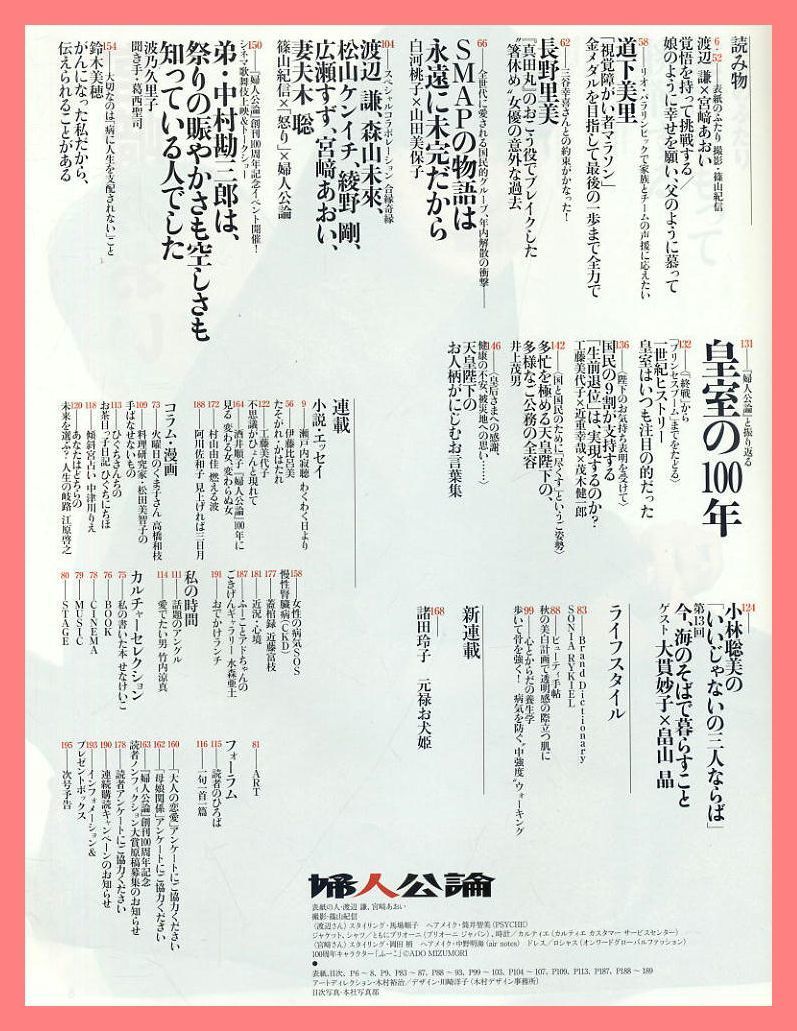 読み物
6・52 表紙のふたり 撮影・篠山紀信
渡辺 謙×宮﨑あおい
覚悟を持って挑戦する/
娘のように幸せを願い、父のように慕って
58 リオ・パラリンピックで家族とチームの声援に応えたい
道下美里
「視覚障がい者マラソン」
金メダルを目指して最後の一歩まで全力で
62 三谷幸喜さんとの約束がかなった!
長野里美
『真田丸』のおこう役でブレイクした
〝箸休め〟女優の意外な過去
66 全世代に愛される国民的グループ、年内解散の衝撃
SMAPの物語は
永遠に未完だから
白河桃子×山田美保子
104 スペシャルコラボレーション 合縁奇縁
渡辺 謙、森山未來、
松山ケンイチ、綾野 剛、
広瀬すず、宮﨑あおい、
妻夫木 聡
篠山紀信×『怒り』×婦人公論
150 『婦人公論』創刊100周年記念イベント開催!
シネマ歌舞伎上映&トークショー
弟・中村勘三郎は、
祭りの賑やかさも空しさも
知っている人でした
波乃久里子
聞き手・葛西聖司
154 大切なのは、「病に人生を支配されない」こと
鈴木美穂
がんになった私だから、
伝えられることがある
131 『婦人公論』と振り返る
皇室の100年
132 〈〈終戦〉から
〝プリンセスブーム〟までをたどる〉
一世紀ヒストリー
皇室はいつも注目の的だった
136 〈陛下のお気持ち表明を受けて〉
国民の9割が支持する
「生前退位」は、実現するのか?
工藤美代子×近重幸哉×茂木健一郎
142 〈国と国民のために「尽くす」というご姿勢〉
多忙を極める天皇陛下の、
多様なご公務の全容
井上茂男
146 〈皇后さまへの感謝、
健康の不安、被災地への思い……〉
天皇陛下の
お人柄がにじむお言葉集
連載
小説・エッセイ
9 瀬戸内寂聴 わくわく日より
56 伊藤比呂美
たそがれ・かはたれ
122 工藤美代子
不思議がひょんと現れて
164 酒井順子 『婦人公論』100年に
見る 変わる女、変わらぬ女
172 村山由佳 燃える波
188 阿川佐和子 見上げれば三日月
コラム・漫画
73 火曜日のくま子さん 高橋和枝
109 料理研究家・松田美智子の
手ばなせないもの
113 ひぐちさんちの
お茶目っ子日記 ひぐちにちほ
118 傾斜宮占い 中津川りえ
120 あなたはどちらの
未来を選ぶ? 人生の岐路 江原啓之
124 小林聡美の
「いいじゃないの三人ならば」
第13回
今、海のそばで暮らすこと
ゲスト 大貫妙子×畠山 晶
ライフスタイル
83 Brand Dictionary
SONIA RYKIEL
88 ビューティ手帖
秋の美白計画で透明感の際立つ肌に
99 心とからだの養生学
歩いて骨を強く! 病気を防ぐ〝中強度〟ウォーキング
新連載
168
諸田玲子 元禄お犬姫
158 女性の病気SOS
慢性腎臓病(CKD)
177 蓋棺録 近藤富枝
181 近況・心境
187 ふーことアドちゃんの
ごきげんギャラリー 水森亜土
191 おでかけランチ
私の時間
111 話題のアングル
114 愛でたい男 竹内涼真
カルチャーセレクション
75 私の書いた本 せなけいこ
76 BOOK
78 CINEMA
79 MUSIC
80 STAGE
81 ART
フォーラム
115 読者のひろば
116 一句一首一篇
160 「大人の恋愛」アンケートにご協力ください
162 「母娘関係」アンケートにご協力ください
163 『婦人公論』創刊100周年記念
読者ノンフィクション大賞原稿募集のお知らせ
178 読者アンケートにご協力ください
190 連続購読キャンペーンのお知らせ
193 インフォメーション&
プレゼントボックス
195 次号予告
婦人公論
表紙の人・渡辺 謙、宮﨑あおい
撮影・篠山紀信
〈渡辺さん〉スタイリング・馬場順子 ヘアメイク・筒井智美(PSYCHE)
ジャケット、シャツ/ともにブリオーニ(ブリオーニ ジャパン)、時計/カルティエ(カルティエ カスタマー サービスセンター)
〈宮﨑さん〉スタイリング・岡田 梢 ヘアメイク・中野明海(air notes) ドレス/ロシャス(オンワードグローバルファッション)
100周年キャラクター「ふーこ」©ADO MIZUMORI
●
表紙、目次、P6～8、P9、P83～87、P88～93、P99～103、P104～107、P109、P113、P187、P188～189
アートディレクション・木村裕治/デザイン・川崎洋子(木村デザイン事務所)
目次写真・本社写真部